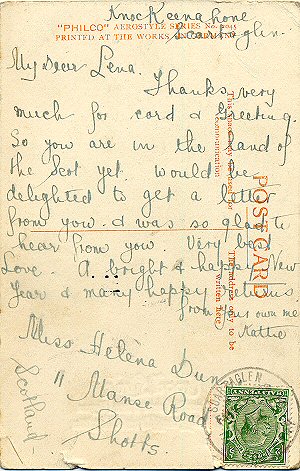 Knockeenahone
Scartaglen.
"PHILCO" AEROSTYLE SERIES No. 2045
PRINTED AT THE WORKS IN BERLIN
My Dear Lena.
Thanks very
much for card & Greeting.
So you are in the land of
the Scot yet. would be
delighted to get a letter
from you. & was so glad to
hear from you. Very best
Love. A bright & happy New
Year & many happy returns.
from your own me
Kattie
Miss Helena Dunn
11 Manse Road
Shotts.
Scotland
POST CARD
The address only to be
written here
SCARTAGLEN